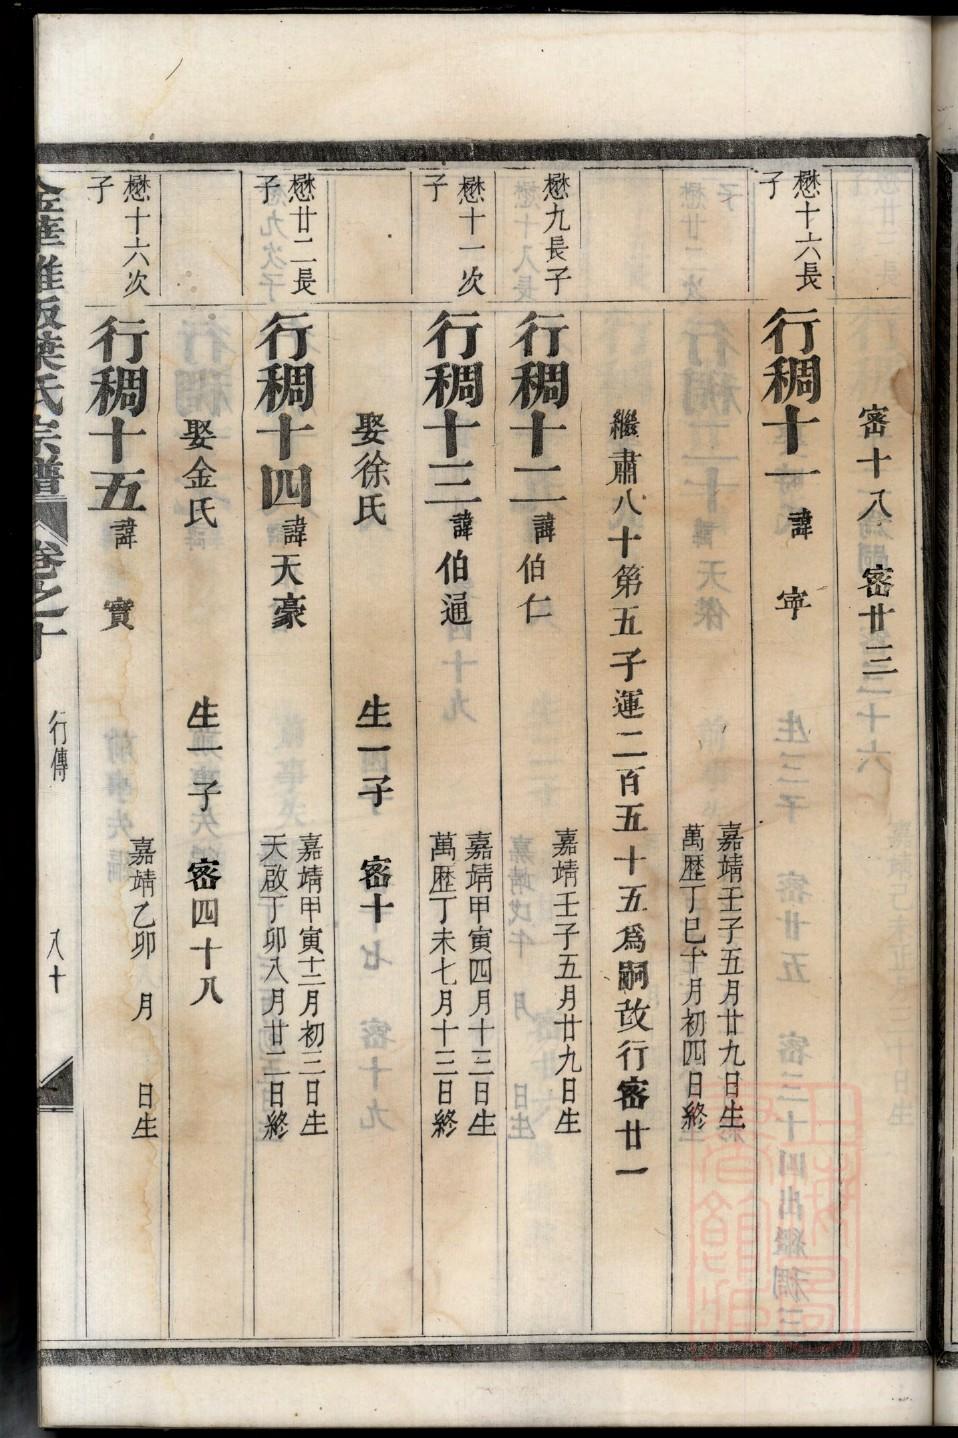 密十八　密廿三
懋十六長子
行稠十一　諱　寧
嘉靖壬子五月廿九日生
萬歷丁巳十月初四日終
繼肅八十第五子運二百五十五爲嗣故行密廿一
懋九長子
行稠十二　諱伯仁
嘉靖壬子五月廿九日生
懋十一次子
行稠十三　諱伯通
嘉靖甲寅四月十三日生
萬歷丁未七月十三日終
娶徐氏　生一子　密十七
懋廿二長子
行稠十四　諱天豪
嘉靖甲寅十二月初三日生
天啟丁卯八月廿二日終
娶金氏　生一子　密四十八
懋十六次子
行稠十五　諱　實
嘉靖乙卯　月　日生
葉氏宗譜　卷之十　行傳　八十